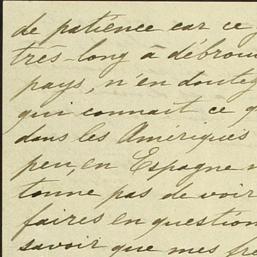 de patience car ce
très-long à débrou
pays, n'en doutez
qui connait ce q
dans les Amériques
peu, en Espagne n
tonne pas de voir
faires en question
savoir que mes frè